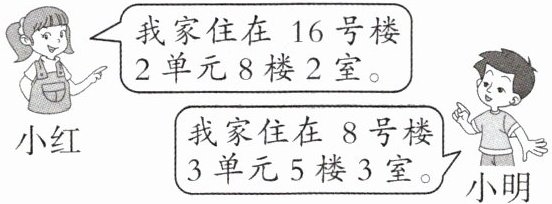 我家住在 16 号楼
2 单元 8 楼 2 室。
小红
我家住在 8 号楼
3 单元 5 楼 3 室。
小明